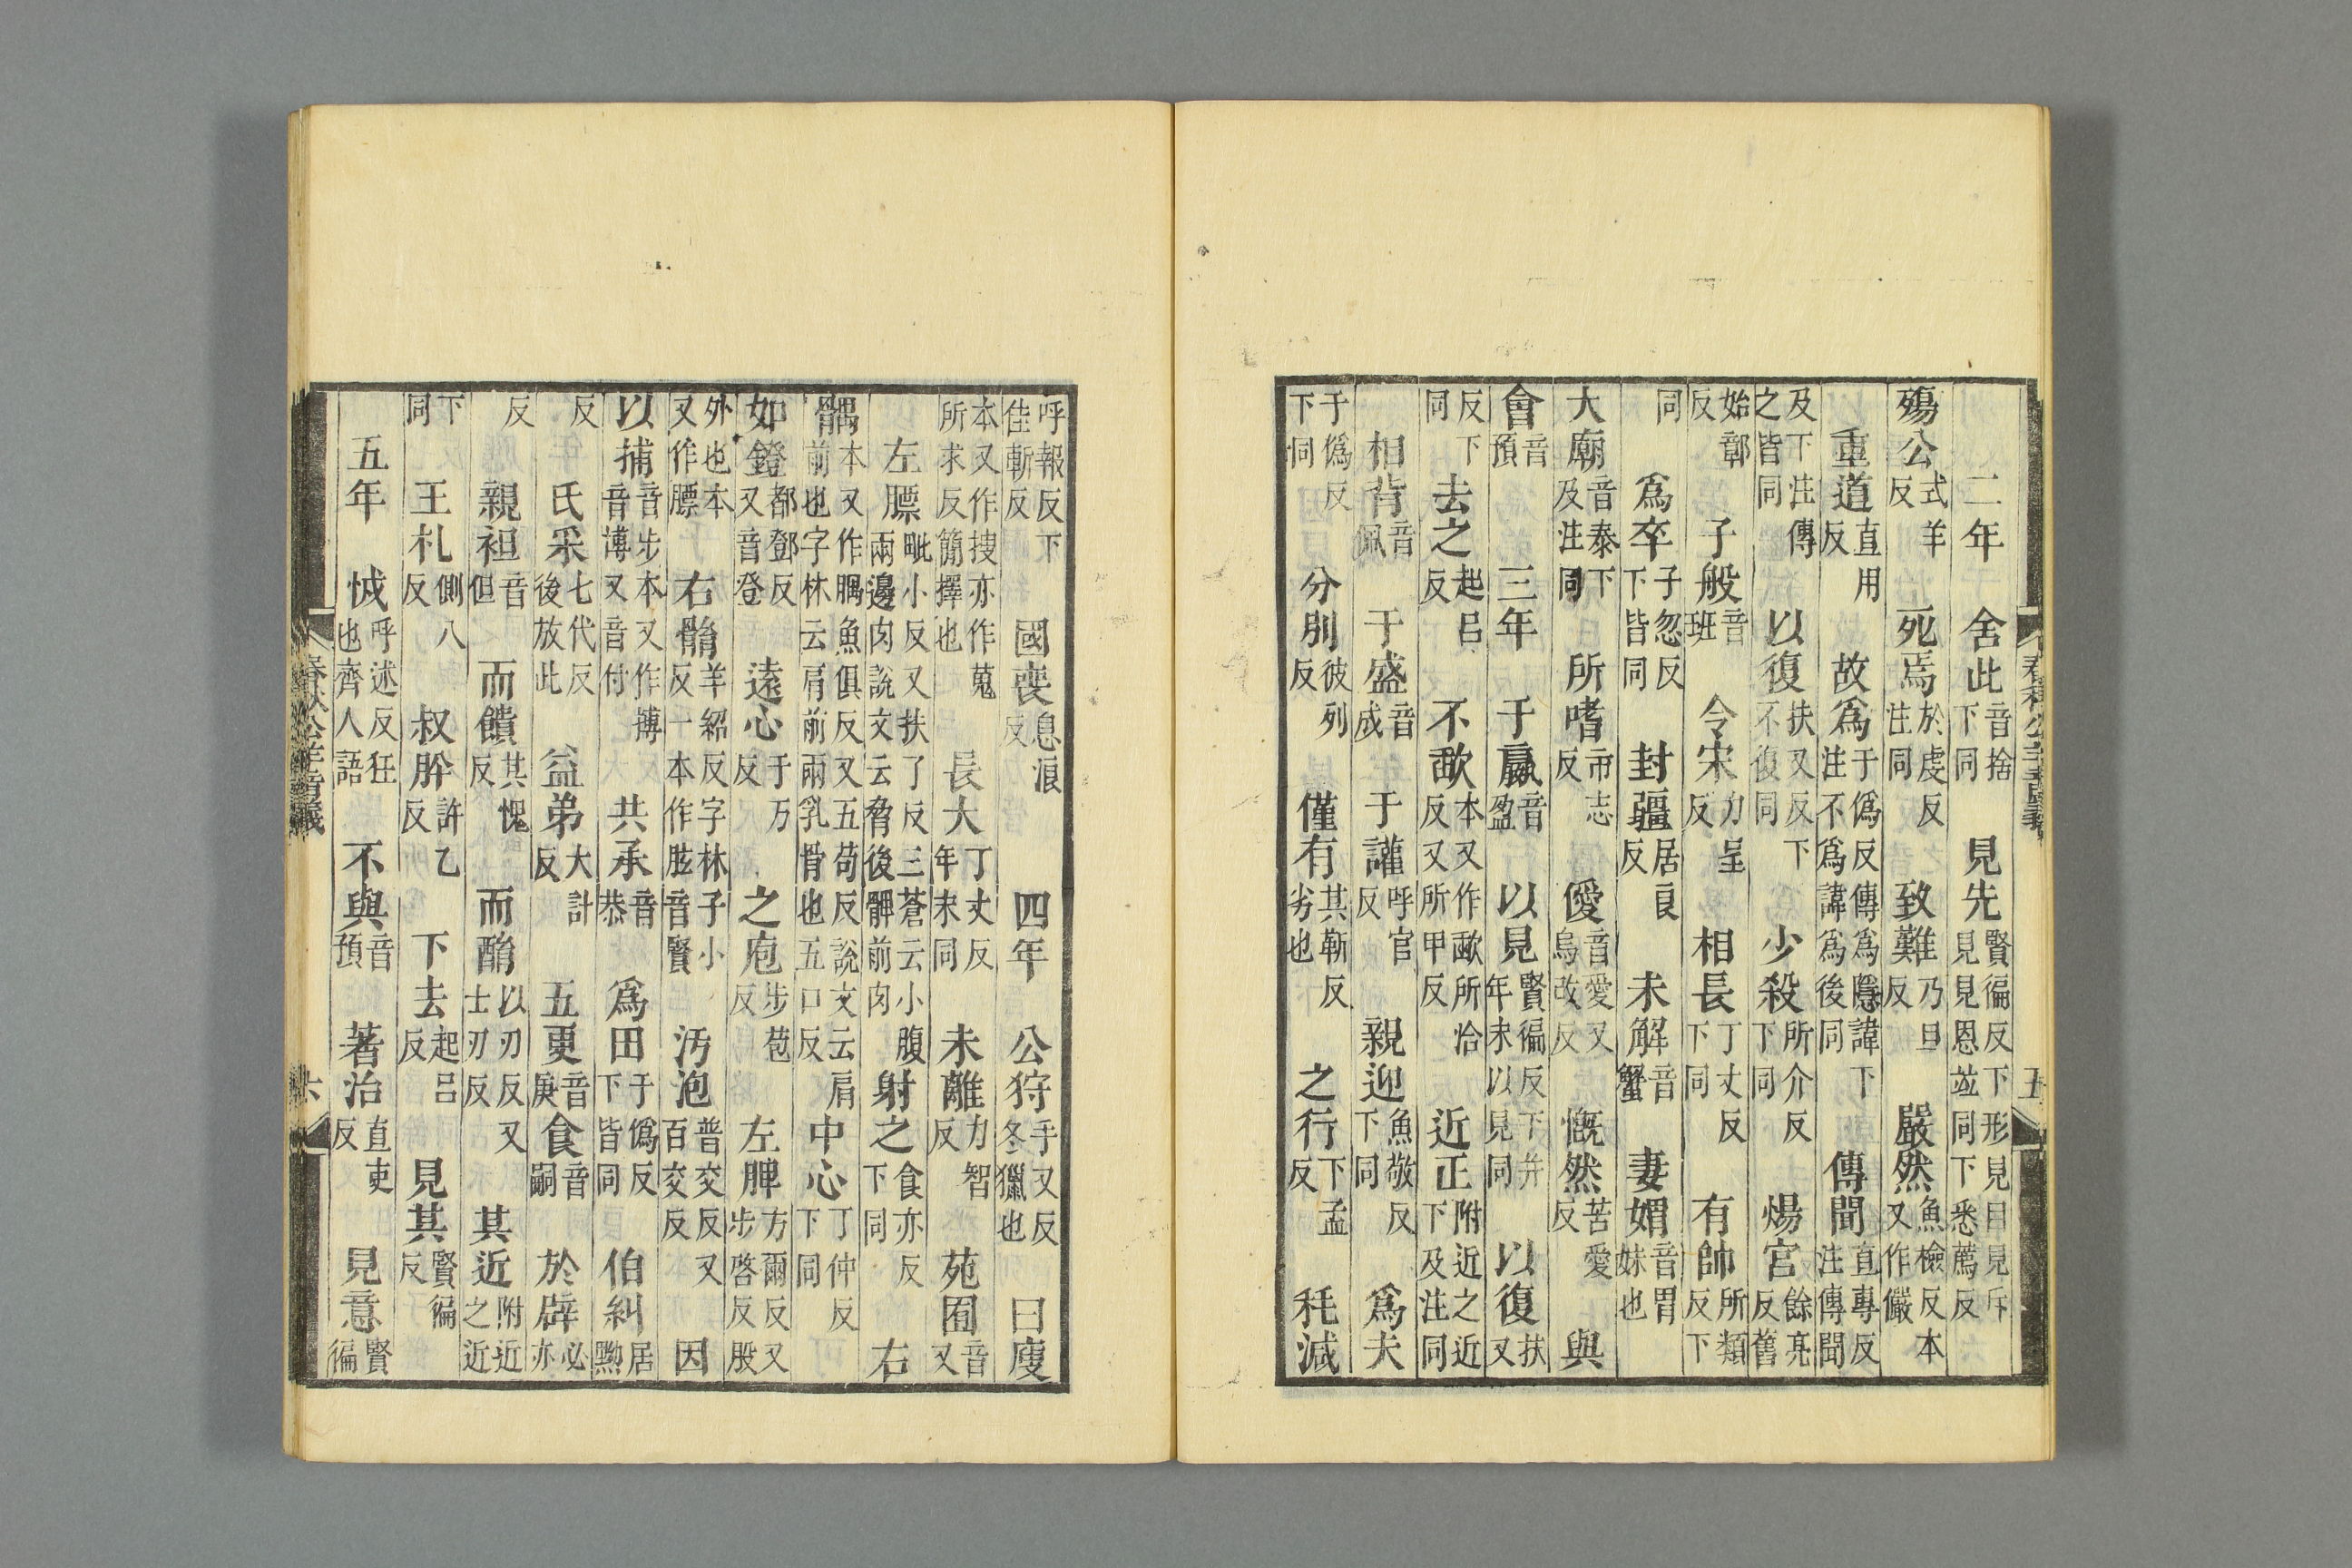 二年 舍此音捨下同 見先賢徧反下形見目見斥見恩竝同下悉薦反
殤公式羊反 死焉於虔反注同 致難乃旦反 嚴然魚檢反本又作儼
重道直用反 故爲于僞反傳爲隱諱下注不爲諱爲後同 傳聞直專反注傳聞
及下注傳之皆同 以復扶又反下不復同 少殺所介反下同 煬宮餘亮反舊
始鄣反 子般音班 令宋力呈反 相長丁丈反下同 有帥所類反下
同 爲卒子忽反下皆同 封疆居良反 未解音蟹 妻媦音胃妹也
大廟音泰下及注同 所嗜市志反 僾音愛又烏改反 慨然苦愛反 與
會音預 三年 于嬴音盈 以見賢徧反下并年末以見同 以復扶又
反下同 去之起呂反 不歃本又作歃所洽反又所甲反 近正附近之近下及注同
相背音佩 于盛音成 于讙呼官反 親迎魚敬反下同 爲夫
于僞反下同 分別彼列反 僅有其靳反劣也 之行下孟反 秏減
呼報反下佳斬反 國喪息浪反 四年 公狩手又反冬獵也 曰廋
本又作搜亦作蒐所求反簡擇也 長大丁丈反年末同 未離力智反 苑囿音又
左膘毗小反又扶了反三蒼云小腹兩邊肉說文云脅後髀前肉 射之食亦反下同 右
髃本又作腢魚俱反又五苟反說文云肩前也字林云肩前兩乳骨也五口反 中心丁仲反下同
如鐙都鄧反又音登 遠心于万反 之庖步苞反 左脾方爾反又步啓反股
外也本又作膘 右䯚羊紹反字林子小反一本作胘音賢 汚泡普交反又百交反 因
以捕音步本又作搏音博又音付 共承音恭 爲田于僞反下皆同 伯糾居黝
反 氏采七代反後放此 益弟大計反 五更音庚 食音嗣 於辟必亦
反 親袒音但 而饋其愧反 而酳以刃反又士刃反 其近附近之近
下同 王札側八反 叔肸許乙反 下去起呂反 見其賢徧反
五年 怴呼述反狂也齊人語 不與音預 著治直吏反 見意賢徧
春秋公羊音義
五
春秋公羊音義
六